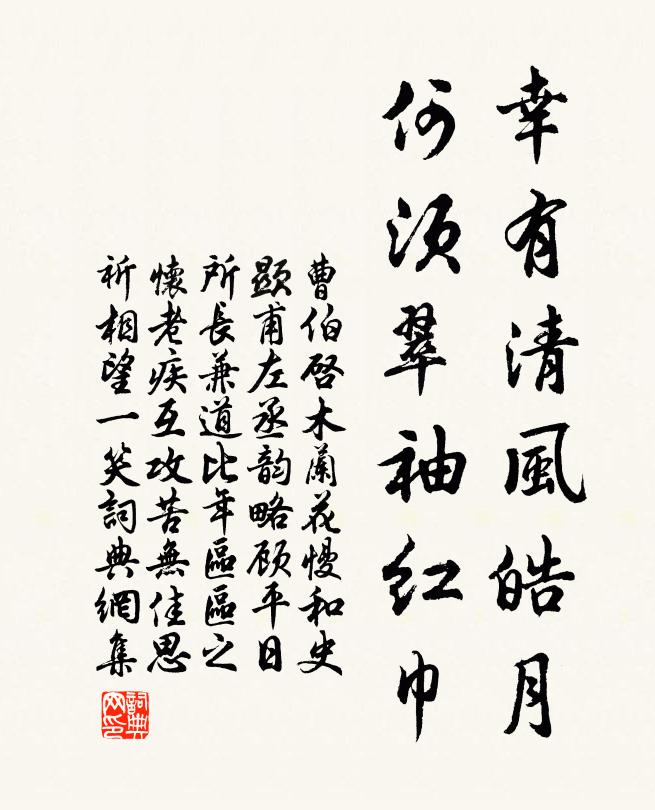 幸有清風皓月
何須翠袖红巾
曹伯啓木蘭花慢和史
顯甫左丞韵略顾平日
所長兼道比年區區之
懷老疾互攻苦無佳思
祈相望一笑詞典網集
詞典
网印